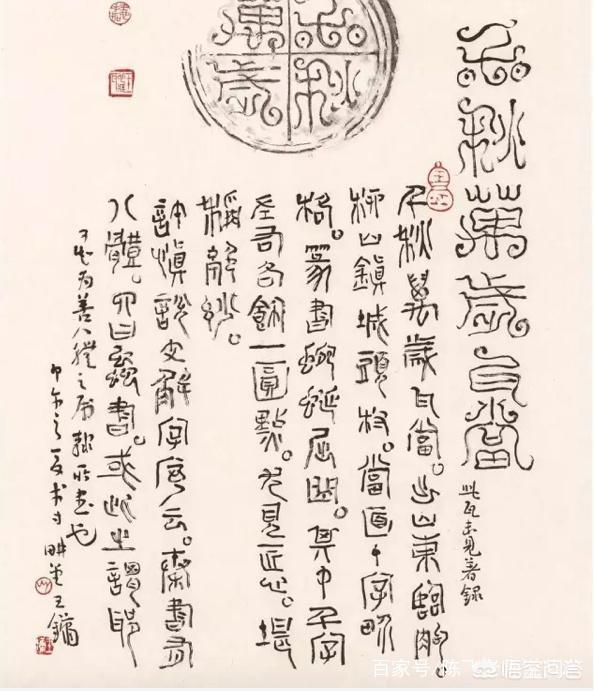 千秋萬歲
千秋萬歲瓦當
此瓦未見著録
千秋萬歲瓦當。出山東臨朐
柳山鎮城頭村。當面十字畍
格。篆書蜿蜒屈曲。其中千字
左右各飾一圓點。尤見匠心。堪
稱妙。
許慎說文解字序云。秦書有
八體。四曰蟲書。或此之謂耶
為善人之屬也
之夏王鏞
百家号/陈
悟空问答